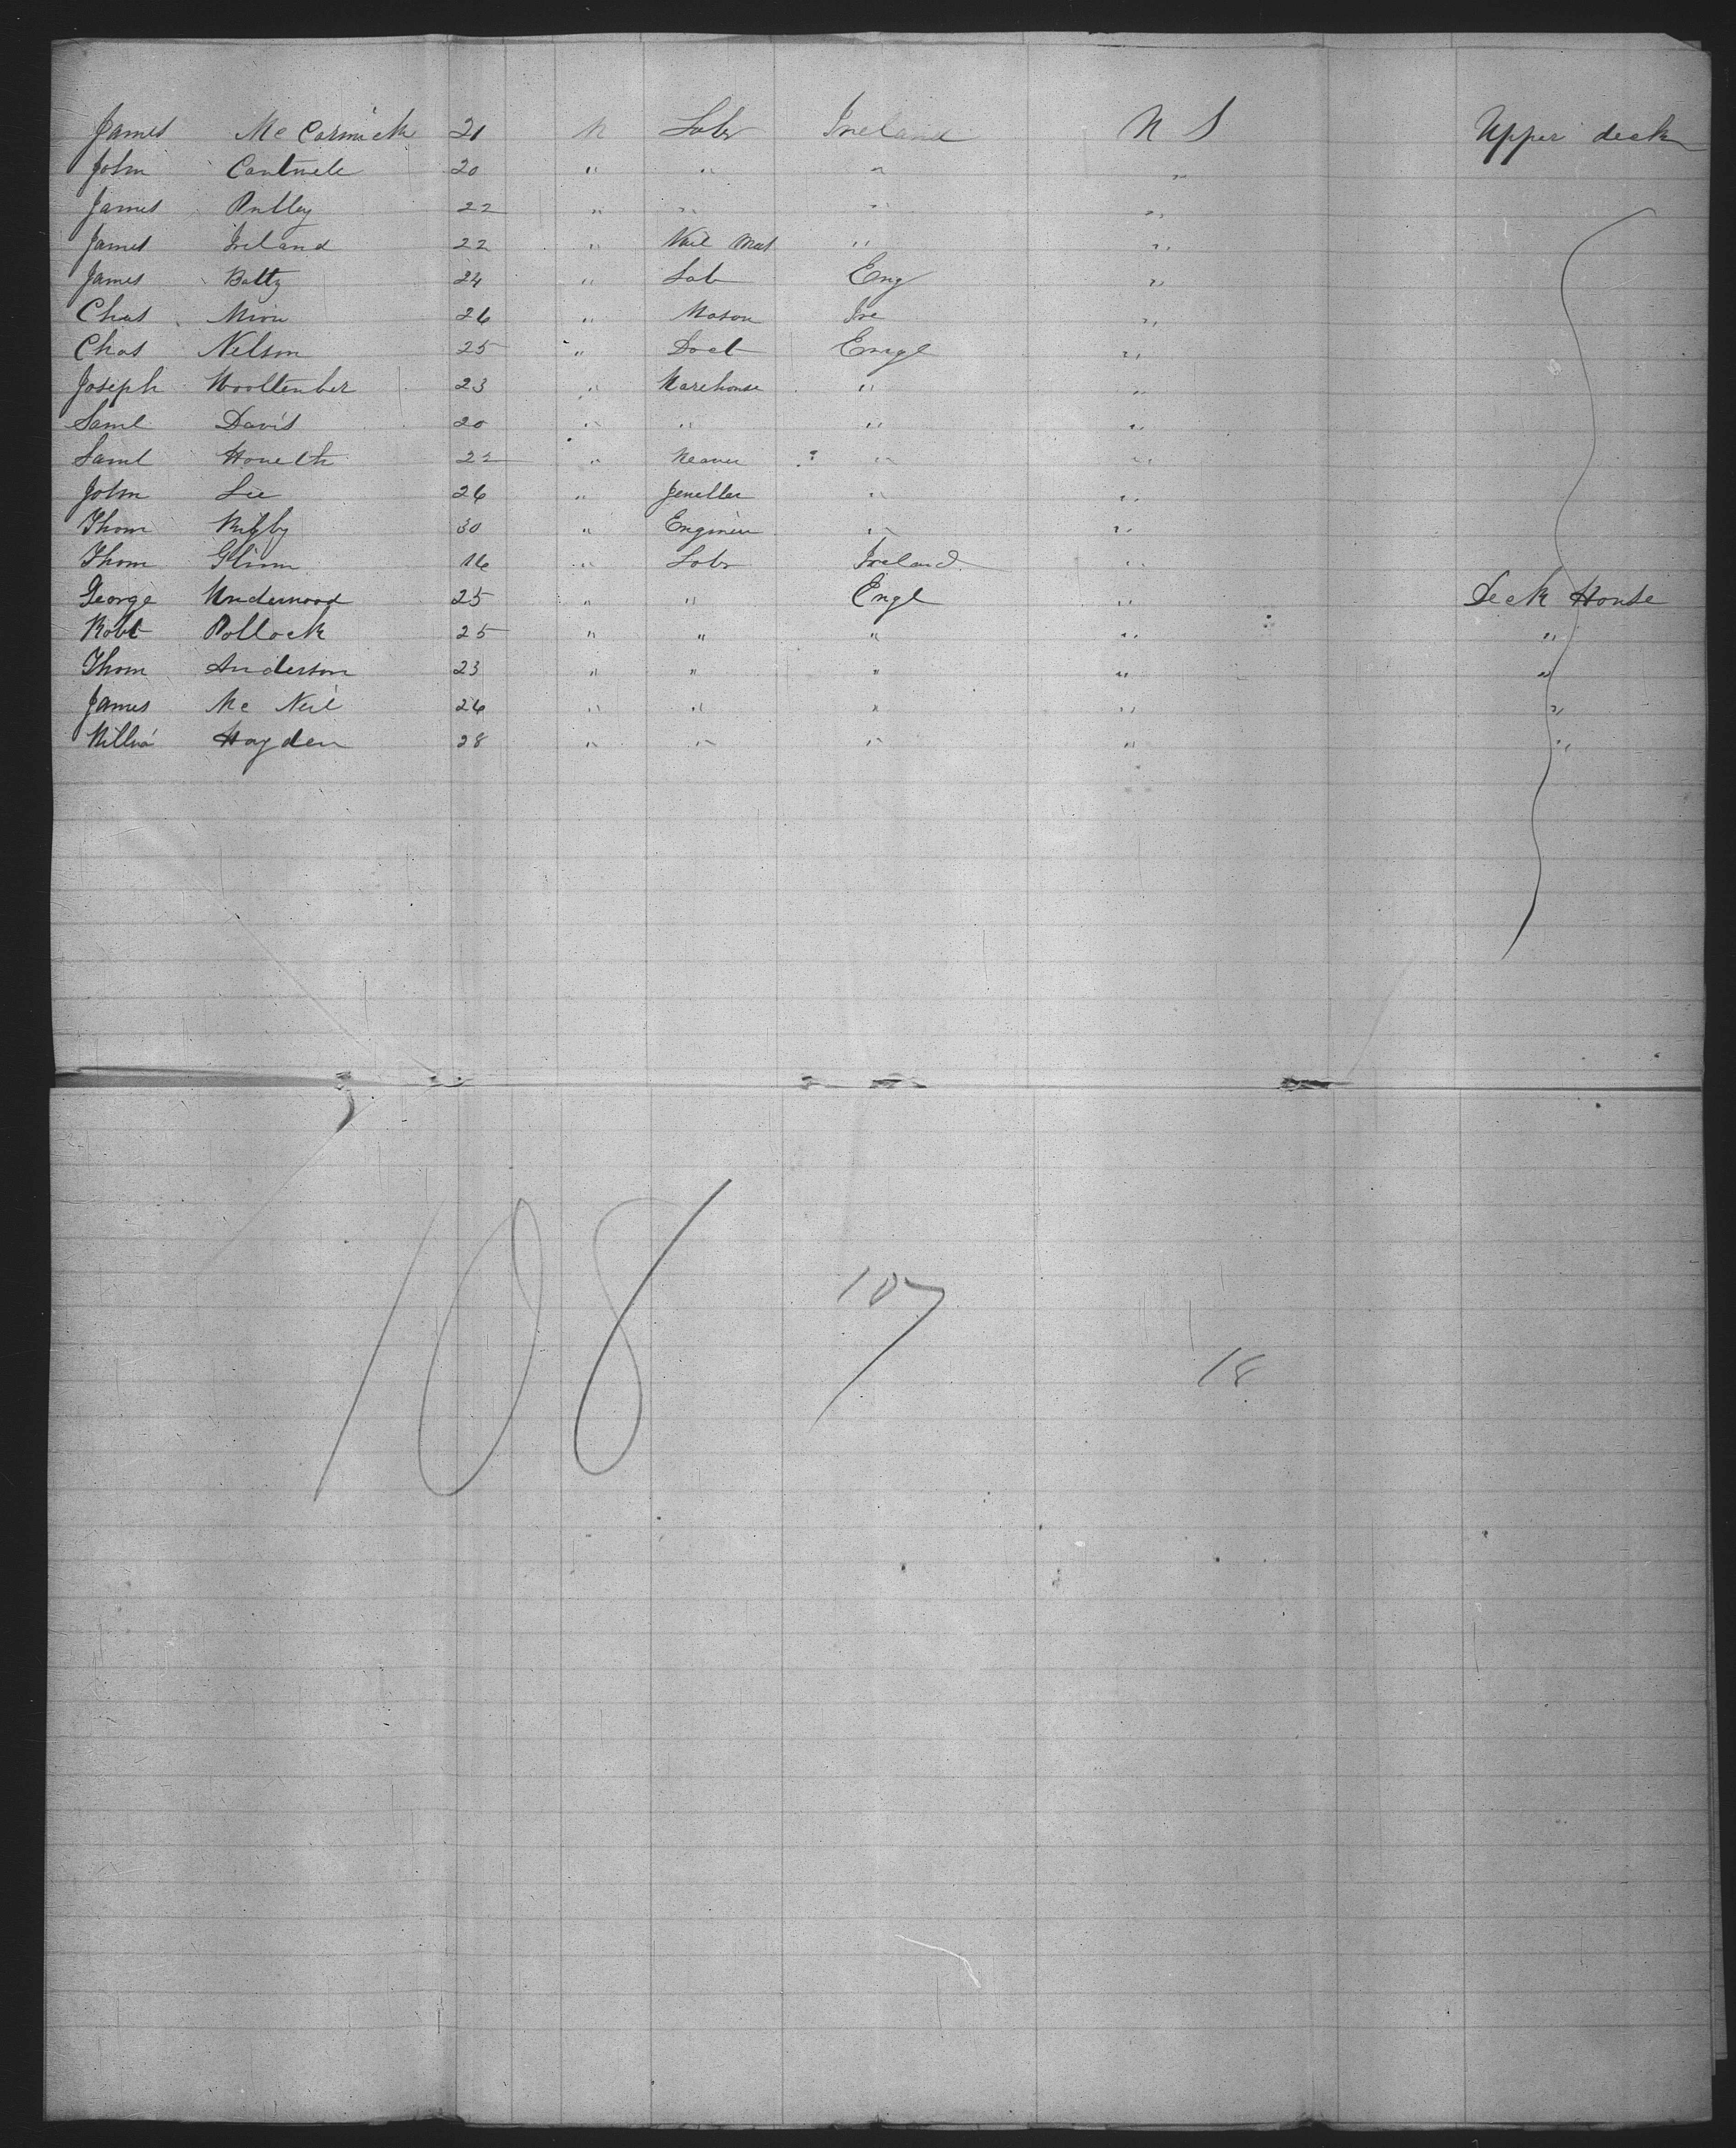 James Mc Cormick 21 M Labr Ireland U S Upper deck
John Cantwell 20 " " " "
James Pulley 22 " " " "
James Ireland 22 " Nail " "
James Batty 24 " Lab Eng "
Chas 26 " Mason Ire "
Chas Nelson 25 " Engl "
Joseph Woollenber 23 " Warehouse " "
Saml Davis 20 " " " "
Saml Howelth 22 " Weaver " "
John Lee 26 " Jeweller " "
Thom Rigby 30 " Engineer " "
Thom Glinn 16 " Labr Ireland "
George Underwood 25 " " Engl " Deck House
Robt Pollock 25 " " " " "
Thom Anderson 23 " " " " "
James Mc Neil 26 " " " " "
Willia Hayden 28 " " " " "
108
107
18